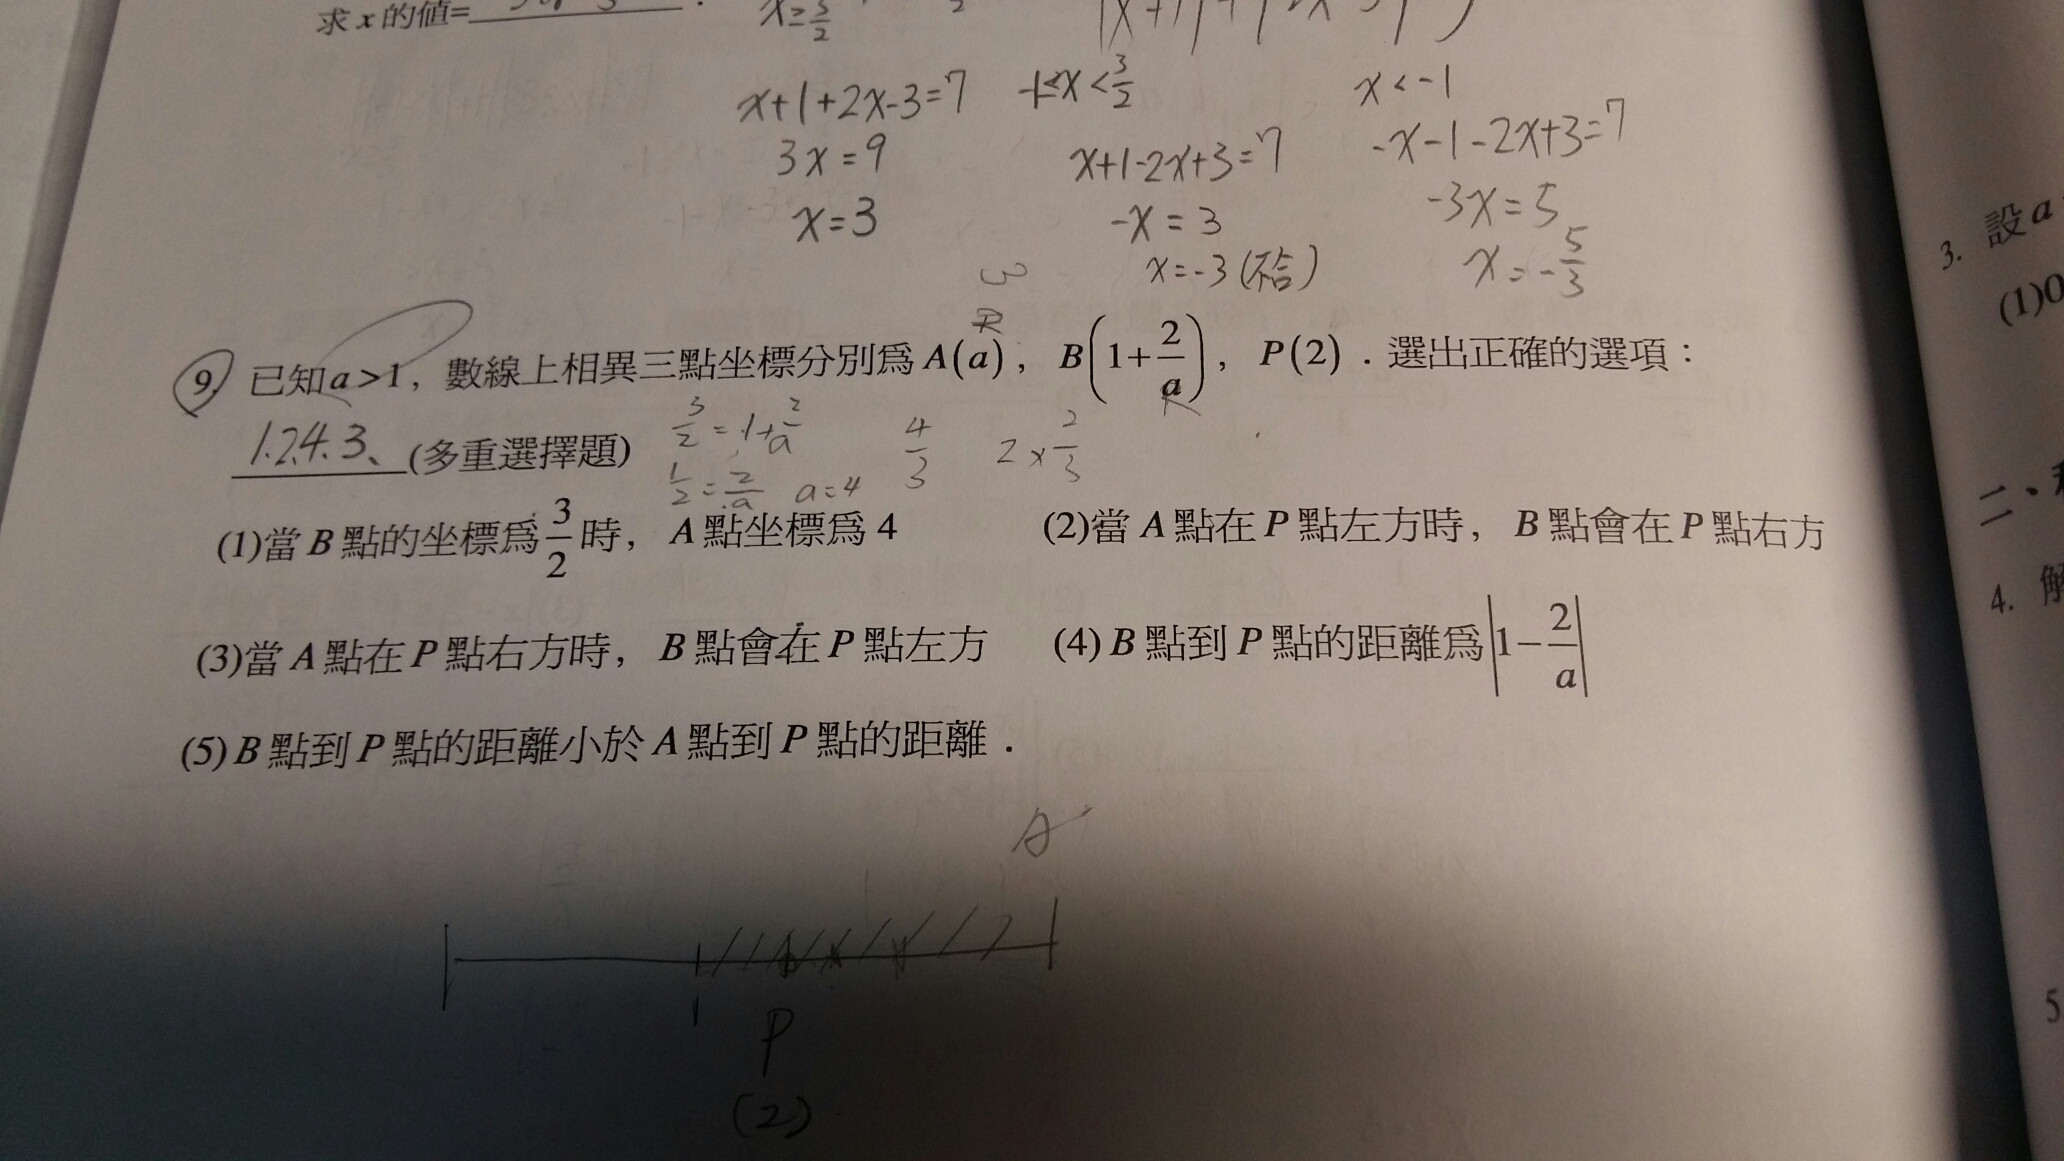 求 x 的值=
x≥3/2
x+1+2x-3=7 -1≤x<3/2 x<-1
3x=9 x+1-2x+3=7 -x-1-2x+3=7
x=3 -x=3 -3x=5
x=-3(不合) x=-5/3
3
9. 已知 a>1，數線上相異三點坐標分別為 A(a)，B(1+2/a)，P(2)．選出正確的選項：
1.2.4.3、(多重選擇題)
3/2=1+2/a 4/3 2×2/3
1/2=2/a a=4
(1)當 B 點的坐標為 3/2 時，A 點坐標為 4 (2)當 A 點在 P 點左方時，B 點會在 P 點右方
(3)當 A 點在 P 點右方時，B 點會在 P 點左方 (4) B 點到 P 點的距離為 |1-2/a|
(5) B 點到 P 點的距離小於 A 點到 P 點的距離．
A
1
P
(2)
3. 設 a
(1)0
二、
4. 解
5